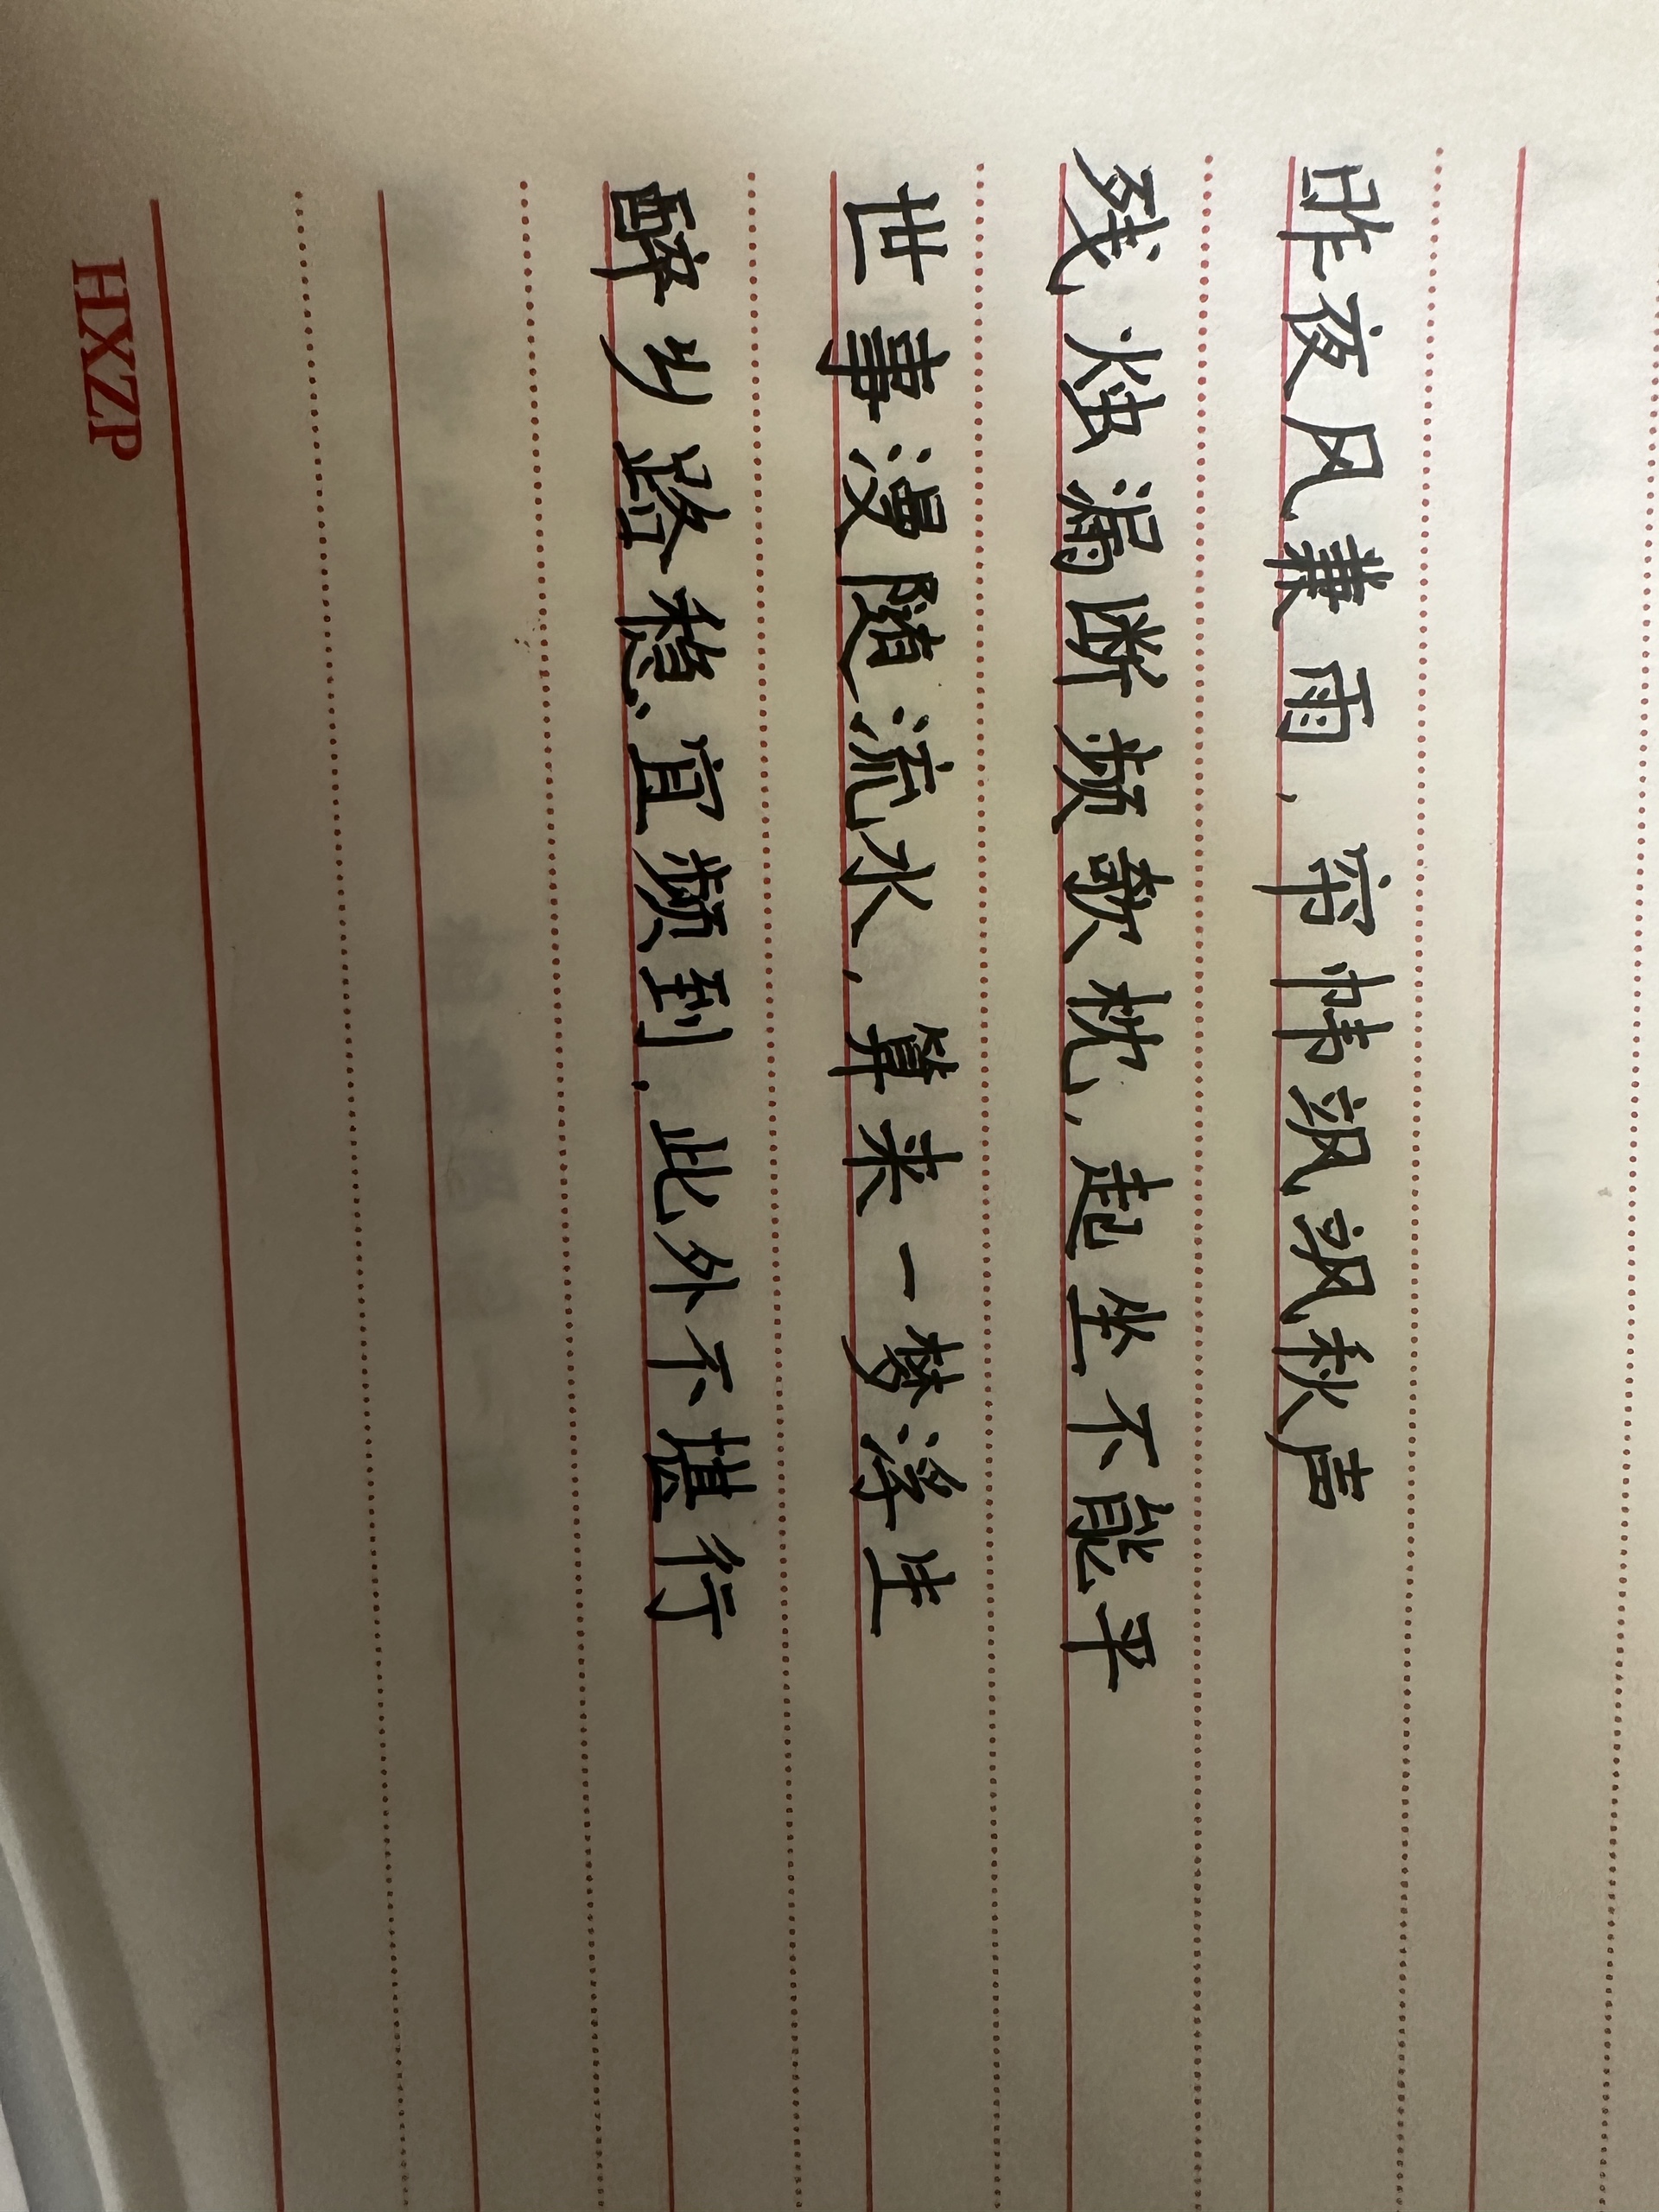 昨夜风兼雨，帘帏飒飒秋声
残烛漏断频欹枕，起坐不能平
世事漫随流水，算来一梦浮生
醉乡路稳宜频到，此外不堪行
HXZP